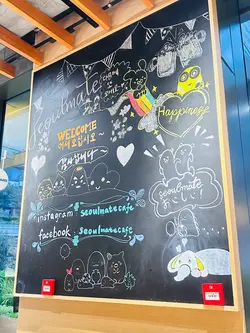 seoulmate
WELCOME
어서오십시오~
감사합니다
Happiness
seoulmate
おいしい!
instagram seoulmatecafe
facebook seoulmatecafe